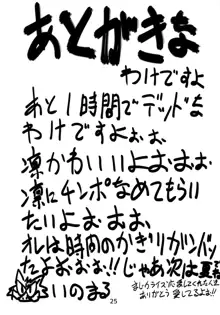 あとがきな
わけですよ
あと1時間でデッドな
わけですよぉぉ、
凛かわいいよおぉぉ
凛にチンポなめてもらい
たいよぉぉぉ、
オレは時間のかぎりリバンバ
たよぉぉぉ!!じゃあ次は夏で
るいのまる
ありがとう 愛してるよぉ!!
25